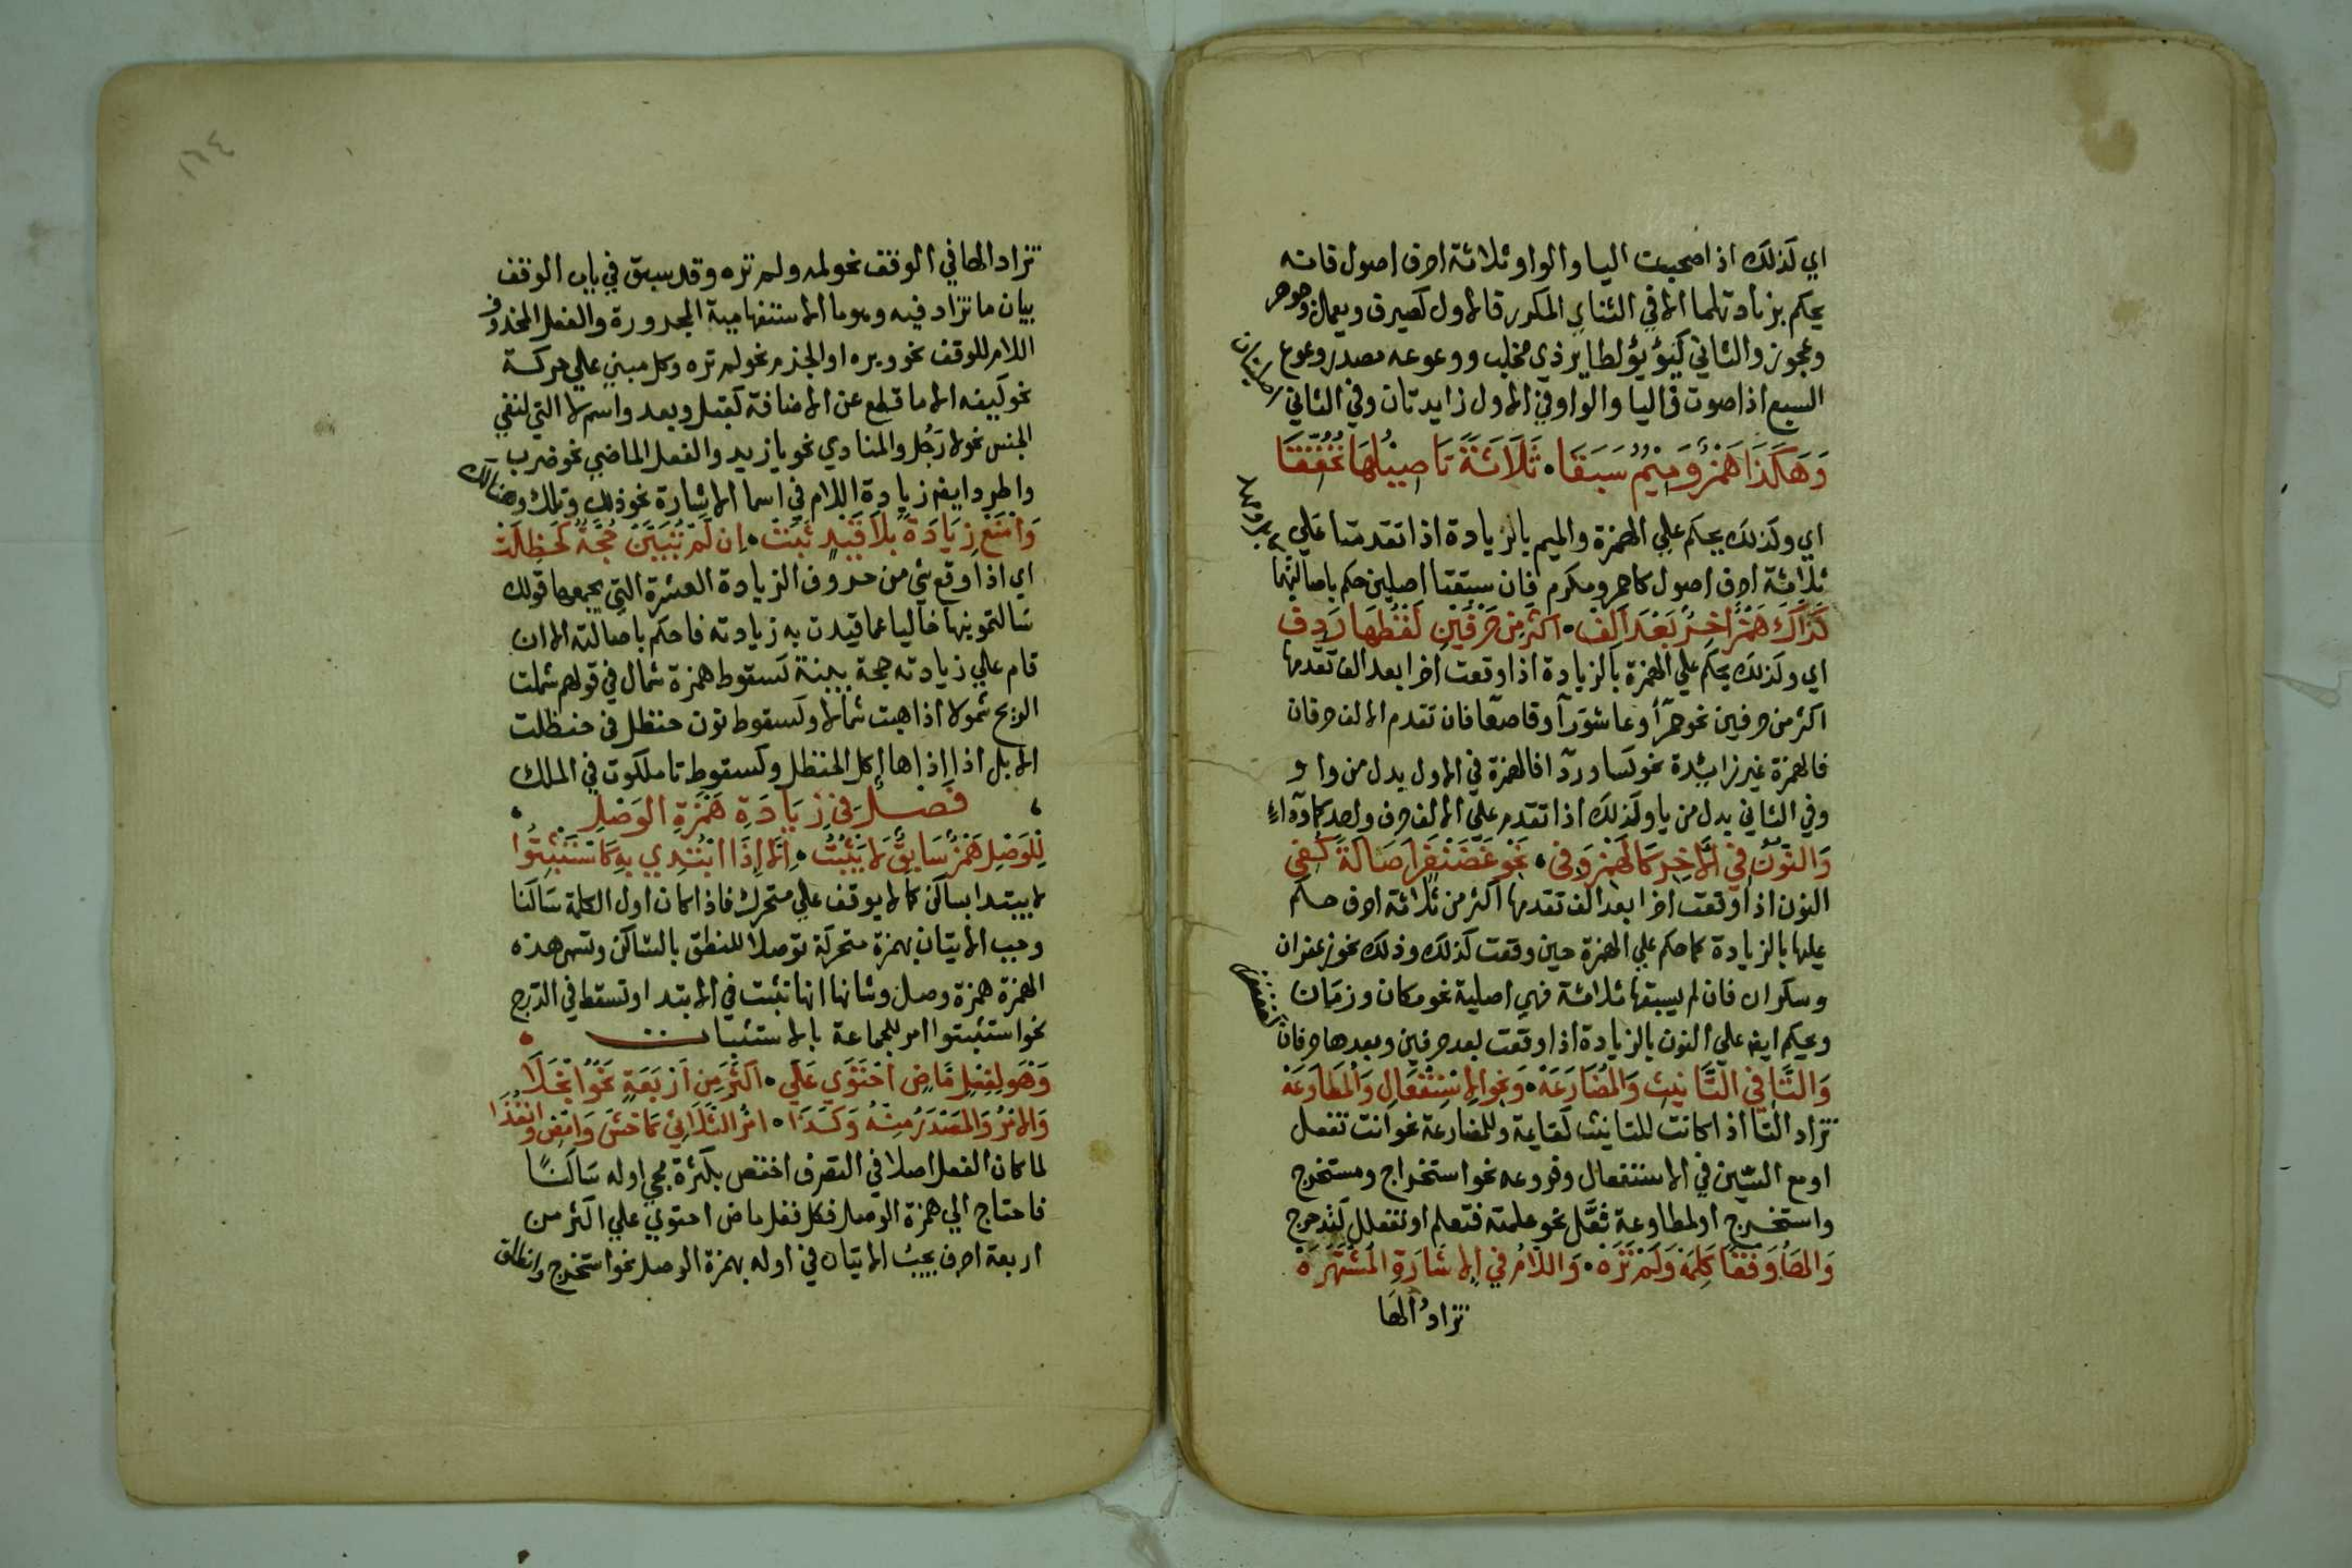 اي لذلك اذا صحبت اليا والواو ثلاثة احرف اصول فانه
يحكم بزيادتهما الا في الثنائي المكرر فالاول كصيرف ويعمل وجوهر
وعجوز والثاني كيؤيؤ لطاير ذي مخلب ووعوعه مصدر وعوع
السبع اذا صوت فاليا والواو في الاول زايدتان وفي الثاني اصليتان
وَهَكَذَا هَمْزٌ وَمِيْمٌ سَبَقَا • ثَلَاثَةً تَاصِيْلُهَا تَحَقَّقَا
اي وكذلك يحكم علي الهمزة والميم بالزيادة اذا تقدمتا علي
ثلاثة احرف اصول كاحمر ومكرم فان سبقتا اصلين حكم باصالتهما
كَذَاكَ هَمْزٌ اخِرٌ بَعْدَ اَلِفْ • اكْثَرَ مِنْ حَرْفَيْنِ لَفْظُهَا رَدِفْ
اي وكذلك يحكم علي الهمزة بالزيادة اذا وقعت اخرا بعد الف تقدمها
اكثر من حرفين نحو حمرآ وعاشورآ وقاصعآ فان تقدم الالف حرفان
فالهمزة غير زايئدة نحو كسا وردآ فالهمزة في الاول بدل من واو
وفي الثاني بدل من يا وكذلك اذا تقدم علي الالف حرف واحد كمآ ودآء
وَالنُّوْنُ فِي الْاخِرِ كَالْهَمْزِ وَفِي • نَحْوِ غَضَنْفَرٍ اَصَالَةً كُفِي
النون اذا وقعت اخرا بعد الف تقدمها اكثر من ثلاثة احرف حكم
عليها بالزيادة كما حكم علي الهمزة حين وقعت كذلك وذلك نحو زعفران
وسكران فان لم يسبقها ثلاثة فهي اصلية نحو مكان وزمان
ويحكم ايضا علي النون بالزيادة اذا وقعت بعد حرفين وبعدها حرفان كغضنفر
وَالتَّا فِي التَّانِيْثِ وَالْمُضَارَعَهْ • وَنَحْوِ الِاسْتِفْعَالِ وَالْمُطَاوَعَهْ
تزاد التا اذا كانت للتانيث كقايمة وللمضارعة نحو انت تفعل
او مع السين في الاستفعال وفروعه نحو استخراج ومستخرج
واستخرج او لمطاوعة فعّل نحو علمته فتعلم او تفعلل كتدحرج
وَالْهَاءُ وَقْفًا كَلِمَهْ وَلَمْ تَرَهْ • وَاللَّامُ فِي الِاشَارَةِ الْمُشْتَهِرَهْ
تزاد الها
١٦٤
تزاد الها في الوقف نحو لمه ولم تره وقد سبق في باب الوقف
بيان ما تزاد فيه وهو ما الاستفهامية المجرورة والفعل المحذوف
اللام للوقف نحو ره او الجزم نحو لم تره وكل مبني علي حركة
نحو كيفه الا ما قطع عن الاضافة كقبل وبعد واسم لا التي لنفي
الجنس نحو لا رَجُل والمنادي نحو يا زيد والفعل الماضي نحو ضرب
واطرد ايضا زيادة اللام في اسما الاشارة نحو ذلك وتلك وهنالك
وَامْنَعْ زِيَادَةً بِلَا قَيْدٍ ثَبَتْ • اِن لَمْ تُبَيِّنْ حُجَّةٌ كَحَظِلَتْ
اي اذا وقع شي من حروف الزيادة العشرة التي يجمعها قولك
سالتمونيها خاليا عما قيدت به زيادته فاحكم باصالته الا ان
قام علي زيادته حجة بينة كسقوط همزة شمال في قولهم شملت
الريح شمولا اذا هبت شمالا وكسقوط نون حنظل في حظلت
الابل اذا اذاها اكل الحنظل وكسقوط تا ملكوت في الملك
فَصْلٌ فِي زِيَادَةِ هَمْزَةِ الوَصْلِ
لِلْوَصْلِ هَمْزٌ سَابِقٌ لَا يَثْبُتُ • اِلَّا اِذَا ابْتُدِي بِهِ كَاسْتَثْبِتُوا
لا يبتدا بساكن كما لا يوقف علي متحرك فاذا كان اول الكلمة ساكنا
وجب الاتيان بهمزة متحركة توصلا للنطق بالساكن وتسمى هذه
الهمزة همزة وصل وشانها انها تثبت في الابتدا وتسقط في الدرج
نحو استثبتوا امر للجماعة بالاستثبات
وَهْوَ لِفِعْلٍ مَاضٍ احْتَوَي عَلَي • اكْثَرَ مِنْ اَرْبَعَةٍ نَحْوُ انْجَلَا
وَالْامْرُ وَالْمَصْدَرُ مِنْهُ وَكَذَا • امْرُ الثُّلَاثِي كَاخْشَ وَامْضِ وَانْفُذَا
لما كان الفعل اصلا في التصرف اختص بكثرة مجي اوله ساكنًا
فاحتاج الي همزة الوصل فكل فعل ماض احتوي علي اكثر من
اربعة احرف يجب الاتيان في اوله بهمزة الوصل نحو استخرج وانطلق